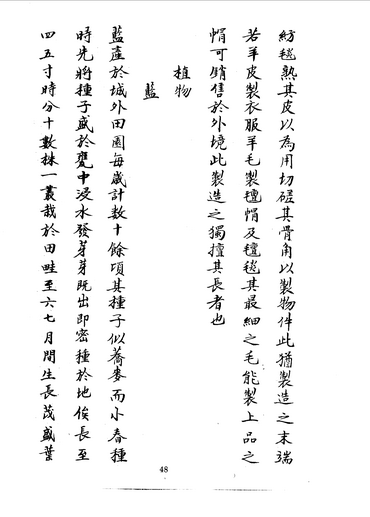 紡毯熟其皮以為用切磋其骨角以製物件此猶製造之末端
若羊皮製衣服羊毛製氈帽及氈毯其最細之毛能製上品之
帽可銷售於外境此製造之獨擅其長者也
植物
藍
藍產於城外田園每歲計數十餘頃其種子似蕎麥而小春種
時先將種子盛於甕中浸水發芽芽既出即密種於地俟長至
四五寸時分十數株一叢栽於田畦至六七月間生長茂盛葉
48